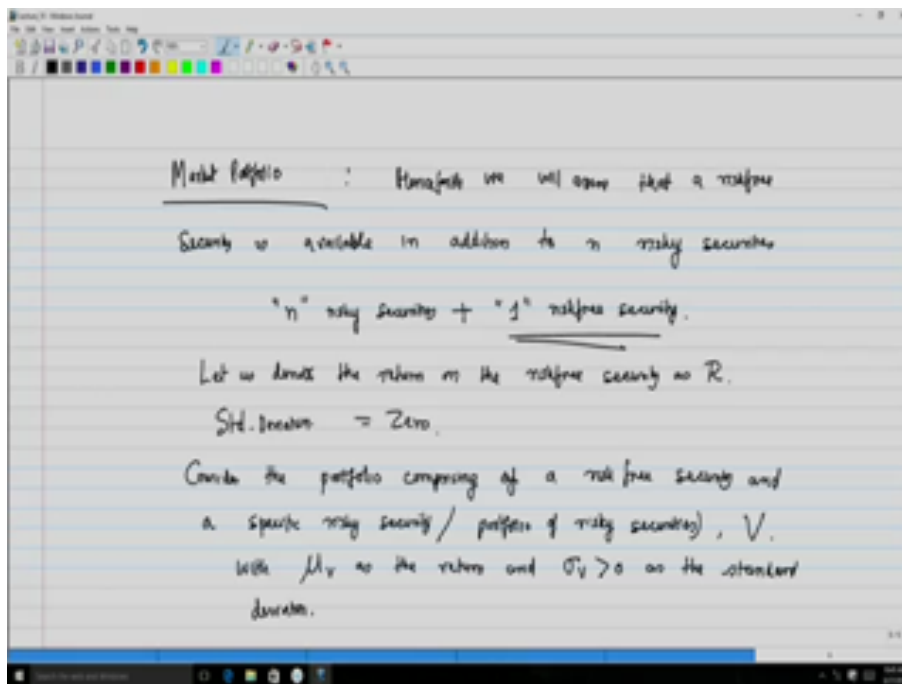 Market Portfolio : Henceforth we will assume that a riskfree
Security is available in addition to n risky securities
"n" risky securities + "1" riskfree security.
Let us denote the return on the riskfree security as R.
Std. Deviation = Zero.
Consider the portfolio comprising of a risk free security and
a specific risky security / portfolio of risky securities), V.
with μ_V as the return and σ_V > 0 as the standard
deviation.